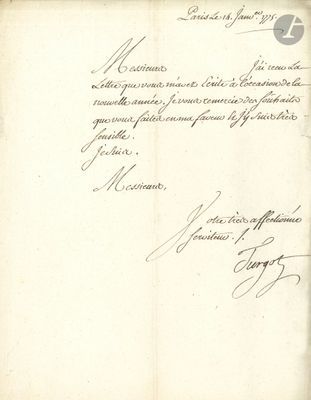 Paris Le 14. Janv.er 1775.
Messieurs J'ai recu La
Lettre que vous m'avez Ecrite à l'occasion de la
nouvelle année. Je vous remercie des souhaits
que vous faites en ma faveur et J'y suis très
sensible.
Je suis.
Messieurs.
Votre très affectionné
serviteur /.
Turgot